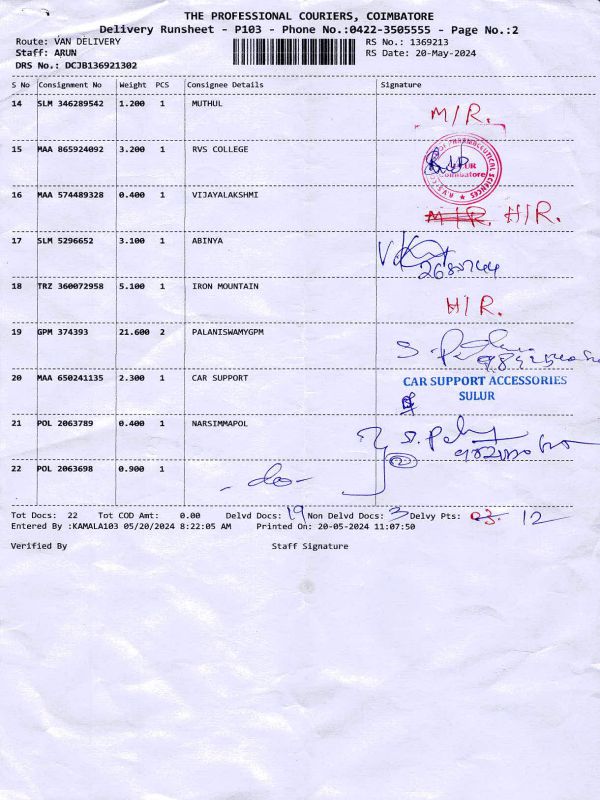 THE PROFESSIONAL COURIERS, COIMBATORE
Delivery Runsheet - P103 - Phone No.:0422-3505555 - Page No.:2
Route: VAN DELIVERY RS No.: 1369213
Staff: ARUN RS Date: 20-May-2024
DRS No.: DCJB136921302
S No Consignment No Weight PCS Consignee Details Signature
14 SLM 346289542 1.200 1 MUTHUL M/R.
15 MAA 865924092 3.200 1 RVS COLLEGE
OF PHARMACEUTICAL SCIENCES
Coimbatore
16 MAA 574489328 0.400 1 VIJAYALAKSHMI M/R. H/R.
17 SLM 5296652 3.100 1 ABINYA
18 TRZ 360072958 5.100 1 IRON MOUNTAIN H/R.
19 GPM 374393 21.600 2 PALANISWAMYGPM
20 MAA 650241135 2.300 1 CAR SUPPORT CAR SUPPORT ACCESSORIES
SULUR
21 POL 2063789 0.400 1 NARSIMMAPOL
22 POL 2063698 0.900 1 - do - 2
Tot Docs: 22 Tot COD Amt: 0.00 Delvd Docs: 19 Non Delvd Docs: 3 Delvy Pts: 03. 12
Entered By :KAMALA103 05/20/2024 8:22:05 AM Printed On: 20-05-2024 11:07:50
Verified By Staff Signature